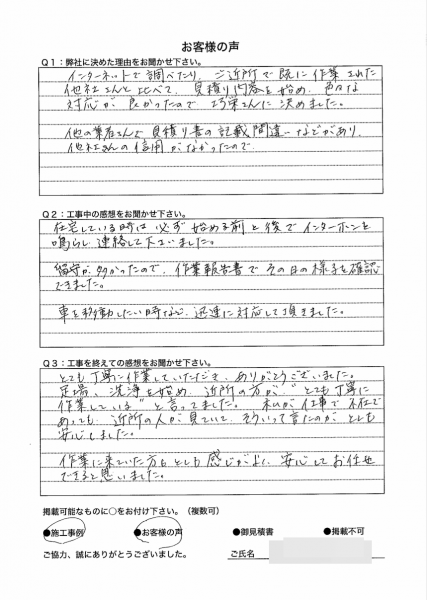 お客様の声
Q1：弊社に決めた理由をお聞かせ下さい。
インターネットで調べたり、ご近所で既に作業された
他社さんと比べて、見積り内容を始め、色々な
対応が良かったので、巧栄さんに決めました。
他の業者さんで見積り書の記載間違いなどがあり、
他社さんの信用がなかったので、
Q2：工事中の感想をお聞かせ下さい。
在宅している時は必ず始める前と後でインターホンを
鳴らし連絡して下さいました。
留守が多かったので、作業報告書でその日の様子を確認
できました。
車を移動したい時など、迅速に対応して頂きました。
Q3：工事を終えての感想をお聞かせ下さい。
とても丁寧に作業していただき、ありがとうございました。
足場、洗浄を始め、近所の方が、“とても丁寧に
作業している”と言ってました。私が仕事で不在で
あっても、近所の人が見ていて、そういって言たのが、とても
安心しました。
作業に来ていた方もとても感じがよく、安心してお任せ
できると思いました。
掲載可能なものに○をお付け下さい。（複数可）
●施工事例 ●お客様の声 ●御見積書 ●掲載不可
ご協力、誠にありがとうございました。 ご氏名